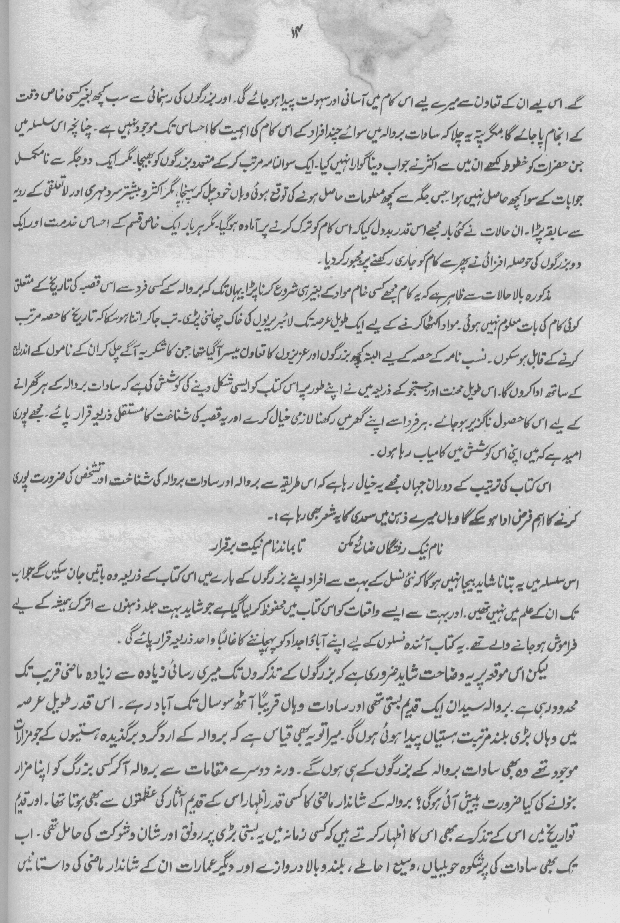 ۱۴
گے۔ اس لیے ان کے تعاون سے میرے لیے اس کام میں آسانی اور سہولت پیدا ہو جائے گی۔ اور بزرگوں کی رہنمائی سے سب کچھ بغیر کسی خاص دقت
کے انجام پا جائے گا، مگر پتہ یہ چلا کہ سادات بروالہ میں سوائے چند افراد کے اس کام کی اہمیت کا احساس تک موجود نہیں ہے۔ چنانچہ اس سلسلہ میں
جن حضرات کو خطوط لکھے ان میں سے اکثر نے جواب دینا گوارا نہیں کیا۔ ایک سوالنامہ مرتب کر کے متعدد بزرگوں کو بھیجا۔ مگر ایک۔ دو جگہ سے نامکمل
جوابات کے سوا کچھ حاصل نہیں ہوا جس جگہ سے کچھ معلومات حاصل ہونے کی توقع ہوئی وہاں خود چل کر پہنچا، مگر اکثر و بیشتر سرد مہری اور لاتعلقی کے رویہ
سے سابقہ پڑا۔ ان حالات نے کئی بار مجھے اس قدر بد دل کیا کہ اس کام کو ترک کرنے پر آمادہ ہو گیا۔ مگر ہر بار ایک خاص قسم کے احساس خدمت اور ایک
دو بزرگوں کی حوصلہ افزائی نے پھر سے کام کو جاری رکھنے پر مجبور کر دیا۔
مذکورہ بالا حالات سے ظاہر ہے کہ یہ کام مجھے کسی خاص مواد کے بغیر ہی شروع کرنا پڑا یہاں تک کہ بروالہ کے کسی فرد سے اس قصبہ کی تاریخ کے متعلق
کوئی کام کی بات معلوم نہیں ہوئی۔ مواد اکٹھا کرنے کے لیے ایک طویل عرصہ تک لائبریریوں کی خاک چھاننی پڑی۔ تب جا کر اتنا ہو سکا کہ تاریخ کا حصہ مرتب
کرنے کے قابل ہو سکوں۔ نسب نامہ کے حصہ کے لیے البتہ کچھ بزرگوں اور عزیزوں کا تعاون میسر آ گیا تھا جن کا شکریہ آگے چل کر ان کے ناموں کے اندراج
کے ساتھ ادا کروں گا۔ اس طویل محنت اور جستجو کے ذریعہ میں نے اپنے طور پر اس کتاب کو ایسی شکل دینے کی کوشش کی ہے کہ سادات بروالہ کے ہر گھرانے
کے لیے اس کا حصول ناگزیر ہو جائے۔ ہر فرد اسے اپنے گھر میں رکھنا لازمی خیال کرے اور یہ قصبہ کی شناخت کا مستقل ذریعہ قرار پائے۔ مجھے پوری
امید ہے کہ میں اپنی اس کوشش میں کامیاب رہا ہوں۔
اس کتاب کی ترتیب کے دوران جہاں مجھے یہ خیال رہا ہے کہ اس طریقہ سے بروالہ اور سادات بروالہ کی شناخت اور تشخص کی ضرورت پوری
کرنے کا اہم فرض ادا ہو سکے گا وہاں میرے ذہن میں سعدی کا یہ شعر بھی رہا ہے:۔
نام نیک رفتگاں ضائع مکن تا بماند نام نیکت برقرار
اس سلسلہ میں یہ بتانا شاید بیجا نہیں ہوگا کہ نئی نسل کے بہت سے افراد اپنے بزرگوں کے بارے میں اس کتاب کے ذریعہ وہ باتیں جان سکیں گے جو اب
تک ان کے علم میں نہیں تھیں۔ اور بہت سے ایسے واقعات کو اس کتاب میں محفوظ کر لیا گیا ہے جو شاید بہت جلد ذہنوں سے اتر کر ہمیشہ کے لیے
فراموش ہو جانے والے تھے۔ یہ کتاب آئندہ نسلوں کے لیے اپنے آبائی اجداد کو پہچاننے کا غالباً واحد ذریعہ قرار پائے گی۔
لیکن اس موقعہ پر یہ وضاحت شاید ضروری ہے کہ بزرگوں کے تذکروں تک میری رسائی زیادہ سے زیادہ ماضی قریب تک
محدود رہی ہے۔ بروالہ سیدان ایک قدیم بستی تھی اور سادات وہاں قریباً آٹھ سو سال تک آباد رہے۔ اس قدر طویل عرصہ
میں وہاں بڑی بلند مرتبت ہستیاں پیدا ہوئی ہوں گی۔ میرا تو یہ بھی قیاس ہے کہ بروالہ کے ارد گرد برگذیدہ ہستیوں کے جو مزارات
موجود تھے وہ بھی سادات بروالہ کے بزرگوں کے ہی ہوں گے۔ ورنہ دوسرے مقامات سے بروالہ آ کر کسی بزرگ کو اپنا مزار
بنوانے کی کیا ضرورت پیش آئی ہوگی؟ بروالہ کے شاندار ماضی کا کسی قدر اظہار اس کے قدیم آثار کی عظمتوں سے بھی ہوتا تھا۔ اور قدیم
تواریخ میں اس کے تذکرے بھی اس کا اظہار کرتے ہیں کہ کسی زمانہ میں یہ بستی بڑی پر رونق اور شان و شوکت کی حامل تھی۔ اب
تک بھی سادات کی پرشکوہ حویلیاں، وسیع احاطے، بلند و بالا دروازے اور دیگر عمارات ان کے شاندار ماضی کی داستانیں